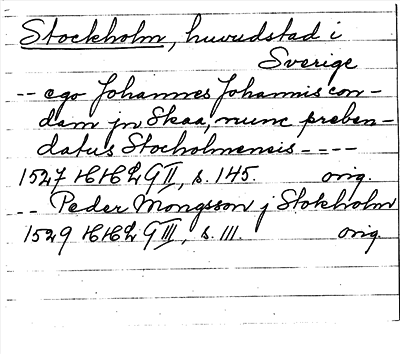 Stockholm, huvudstad i
Sverige
-- ego Johannes Johannis con-
dam jn Skaa, nunc preben-
datus Stocholmensis ----
1527 HH2 GII, s. 145. orig.
-- Peder Mongsson j Stokholm
1529 HH2 GIII, s. 111. orig.